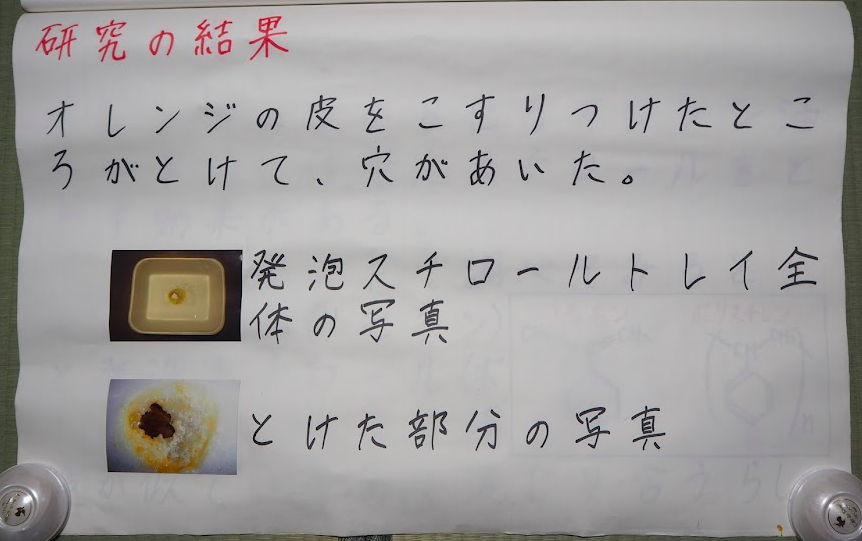 研究の結果
オレンジの皮をこすりつけたとこ
ろがとけて、穴があいた。
発泡スチロールトレイ全
体の写真
とけた部分の写真